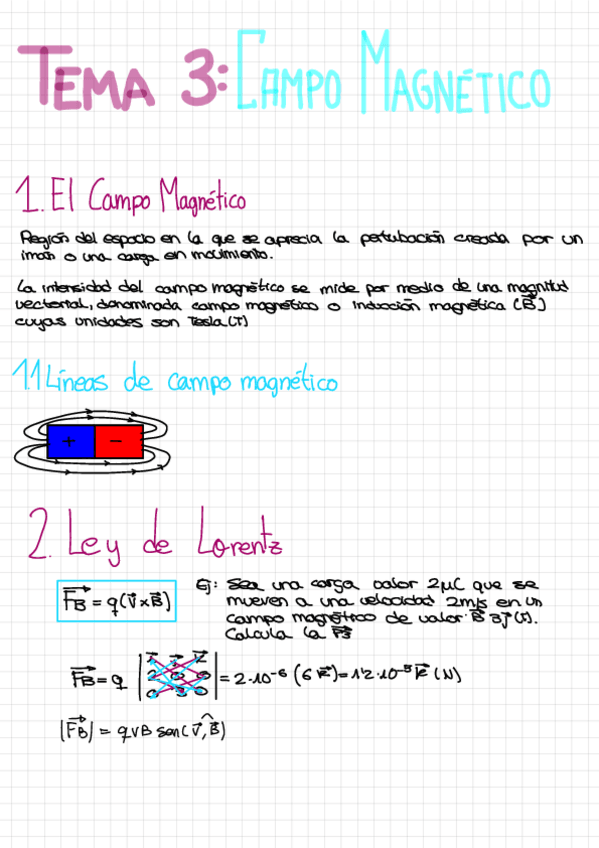 TEMA 3: CAMPO MAGNÉTICO
1. El Campo Magnético
Región del espacio en la que se aprecia la pertubación creada por un
imán o una carga en movimiento.
La intensidad del campo magnético se mide por medio de una magnitud
vectorial, denominada campo magnético o inducción magnética (B⃗)
cuyas unidades son Tesla (T)
1.1 Líneas de campo magnético
+ −
2. Ley de Lorentz
F⃗B = q(v⃗ x B⃗)
Ej: Sea una carga valor 2μC que se
mueven a una velocidad 2m/s en un
campo magnético de valor B⃗ 3j⃗ (T).
Calcula la F⃗B
F⃗B = q | i⃗ j⃗ k⃗
2 0 0
0 3 0 | = 2·10⁻⁶ (6 k⃗) = 1'2·10⁻⁵ k⃗ (N)
|F⃗B| = qvB sen(v⃗, B⃗)